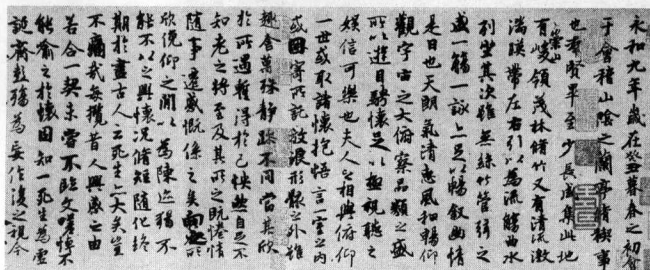 永和九年歲在癸丑暮春之初會
于會稽山陰之蘭亭脩稧事
也群賢畢至少長咸集此地
有崇山峻領茂林脩竹又有清流激
湍暎帶左右引以為流觴曲水
列坐其次雖無絲竹管弦之
盛一觴一詠亦足以暢敘幽情
是日也天朗氣清惠風和暢仰
觀宇宙之大俯察品類之盛
所以遊目騁懷足以極視聽之
娛信可樂也夫人之相與俯仰
一世或取諸懷抱悟言一室之內
或因寄所託放浪形骸之外雖
趣舍萬殊靜躁不同當其欣
於所遇暫得於己怏然自足不
知老之將至及其所之既惓情
隨事遷感慨係之矣向之所
欣俛仰之間以為陳迹猶不
能不以之興懷況脩短隨化終
期於盡古人云死生亦大矣豈
不痛哉每攬昔人興感之由
若合一契未嘗不臨文嗟悼不
能喻之於懷固知一死生為虛
誕齊彭殤為妄作後之視今